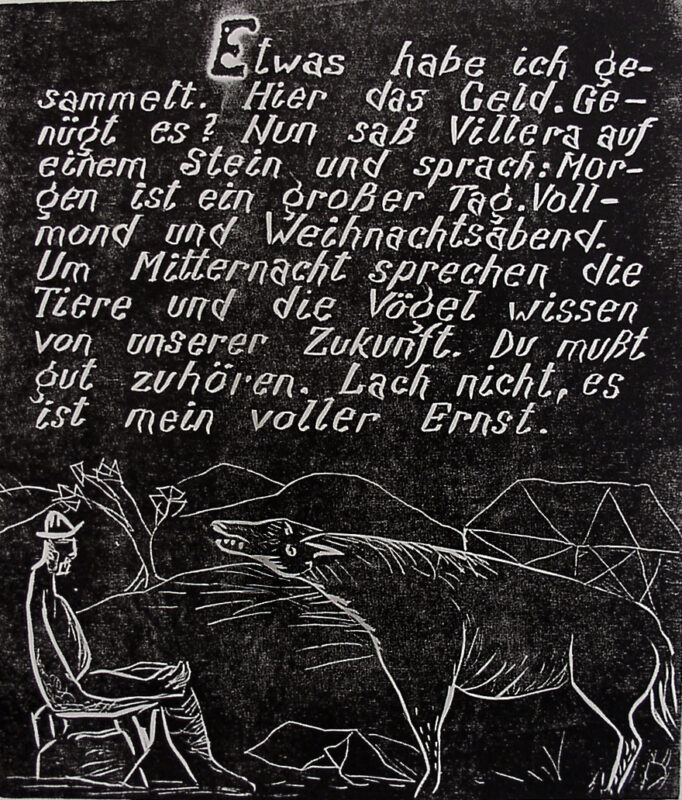 Etwas habe ich ge-
sammelt. Hier das Geld. Ge-
nügt es? Nun saß Villera auf
einem Stein und sprach: Mor-
gen ist ein großer Tag. Voll-
mond und Weihnachtsabend.
Um Mitternacht sprechen die
Tiere und die Vögel wissen
von unserer Zukunft. Du mußt
gut zuhören. Lach nicht, es
ist mein voller Ernst.